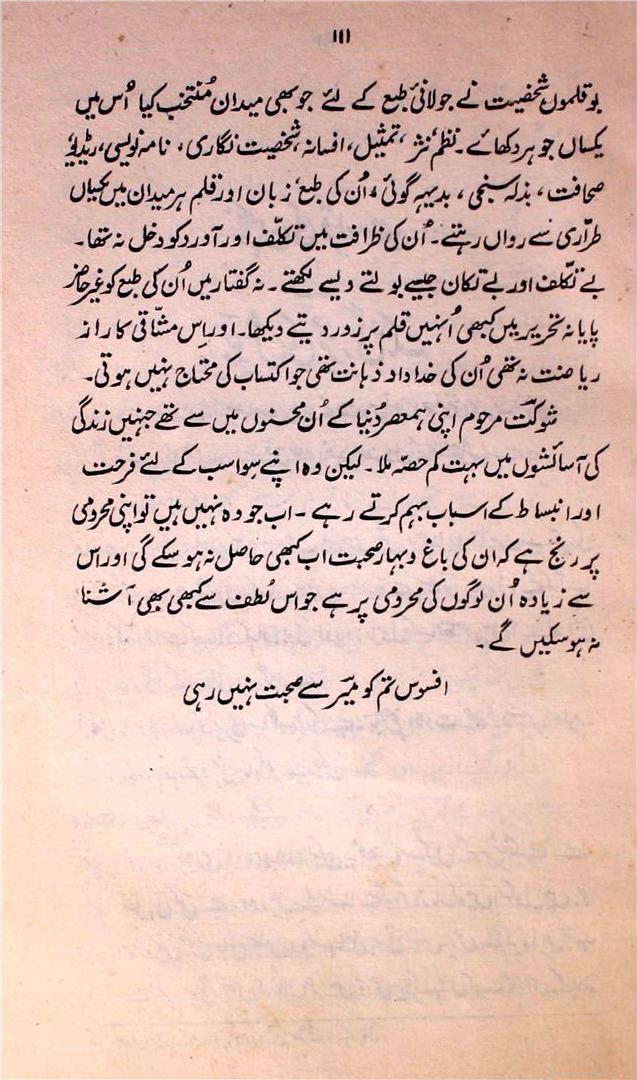 ۱۱۱
بوقلموں شخصیت نے جولانیٔ طبع کے لئے جو بھی میدان مُنتخب کیا اُس میں
یکساں جوہر دکھائے۔ نظم‘ نثر‘ تمثیل، افسانہ، شخصیت نگاری، نامہ نویسی، ریڈیو‘
صحافت، بذلہ سنجی، بدیہہ گوئی، اُن کی طبع‘ زبان اور قلم ہر میدان میں یکساں
طرّاری سے رواں رہتے۔ اُن کی ظرافت میں تکلّف اور آورد کو دخل نہ تھا۔
بے تکلّف اور بے تکان جیسے بولتے ویسے لکھتے۔ نہ گفتار میں اُن کی طبع کو غیر حاضر
پایا نہ تحریر میں کبھی اُنہیں قلم پر زور دیتے دیکھا۔ اور اِس مشّاقی کا راز
ریاضت نہ تھی اُن کی خداداد ذہانت تھی جو اکتساب کی محتاج نہیں ہوتی۔
شوکت مرحوم اپنی ہمعصر دُنیا کے اُن محسنوں میں سے تھے جنہیں زندگی
کی آسائشوں میں بہت کم حصّہ ملا۔ لیکن وہ اپنے سوا سب کے لئے فرحت
اور انبساط کے اسباب بہم کرتے رہے۔ اب جو وہ نہیں ہیں تو اپنی محرومی
پر رنج ہے کہ ان کی باغ و بہار صحبت اب کبھی حاصل نہ ہو سکے گی اور اس
سے زیادہ اُن لوگوں کی محرومی پر ہے جو اس لُطف سے کبھی بھی آشنا
نہ ہو سکیں گے۔
افسوس تم کو میرؔ سے صحبت نہیں رہی